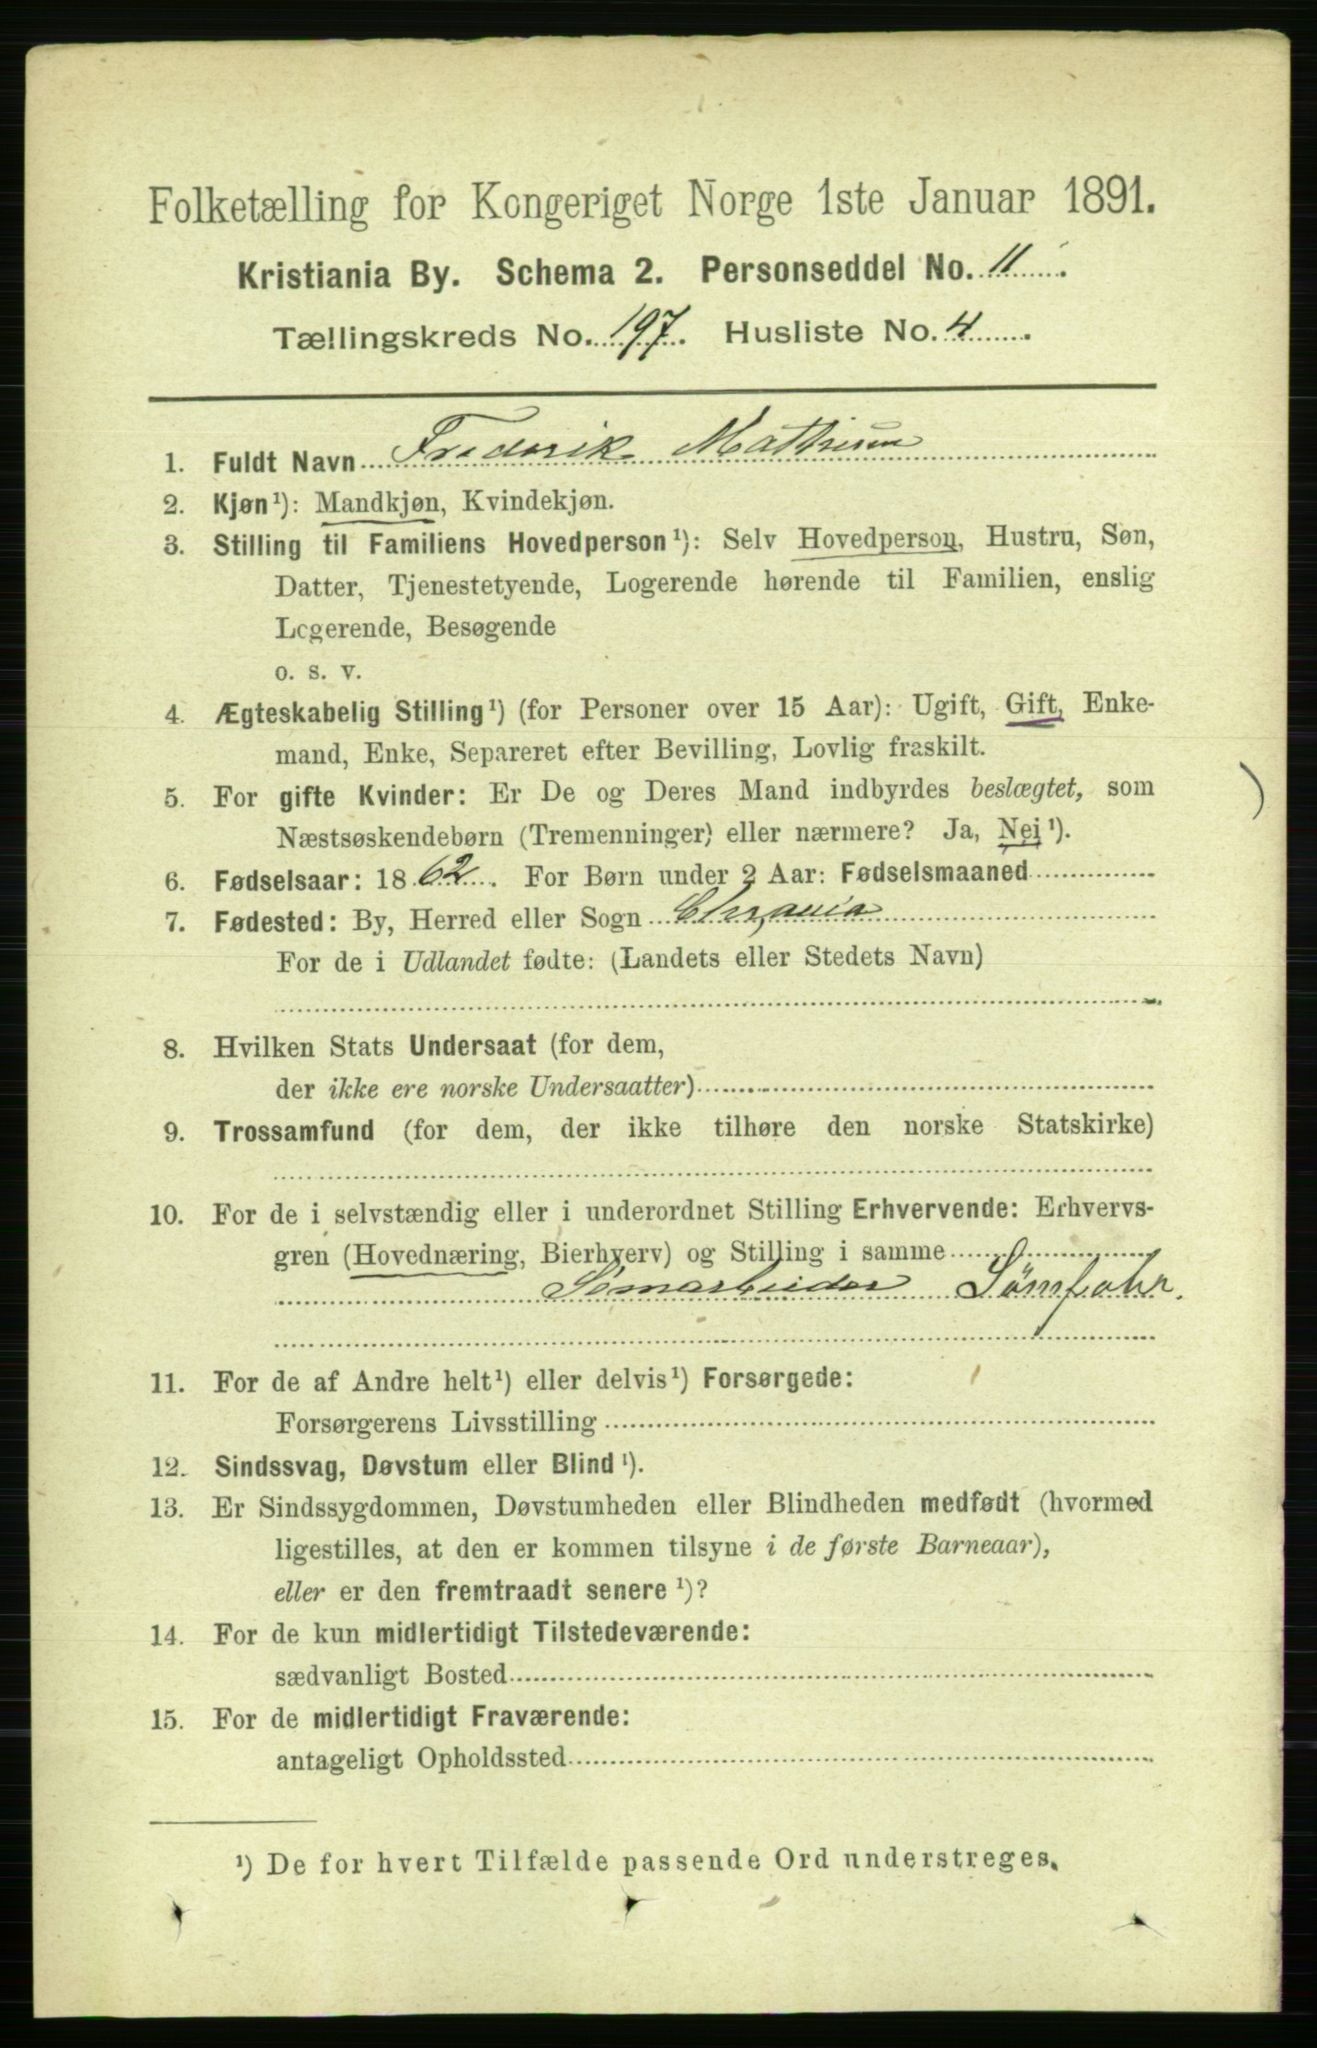 Folketælling for Kongeriget Norge 1ste Januar 1891.
Kristiania By. Schema 2. Personseddel No. 11
Tællingskreds No. 197. Husliste No. 4
1. Fuldt Navn Frederik
2. Kjøn¹): Mandkjøn, Kvindekjøn.
3. Stilling til Familiens Hovedperson¹): Selv Hovedperson, Hustru, Søn,
Datter, Tjenestetyende, Logerende hørende til Familien, enslig
Logerende, Besøgende
o. s. v.
4. Ægteskabelig Stilling¹) (for Personer over 15 Aar): Ugift, Gift, Enke-
mand, Enke, Separeret efter Bevilling, Lovlig fraskilt.
5. For gifte Kvinder: Er De og Deres Mand indbyrdes beslægtet, som
Næstsøskendebørn (Tremenninger) eller nærmere? Ja, Nej¹).
6. Fødselsaar: 1862. For Børn under 2 Aar: Fødselsmaaned
7. Fødested: By, Herred eller Sogn Chrania
For de i Udlandet fødte: (Landets eller Stedets Navn)
8. Hvilken Stats Undersaat (for dem,
der ikke ere norske Undersaatter)
9. Trossamfund (for dem, der ikke tilhøre den norske Statskirke)
10. For de i selvstændig eller i underordnet Stilling Erhvervende: Erhvervs-
gren (Hovednæring, Bierhverv) og Stilling i samme
Sømarbeider Sømfabr.
11. For de af Andre helt¹) eller delvis¹) Forsørgede:
Forsørgerens Livsstilling
12. Sindssvag, Døvstum eller Blind¹).
13. Er Sindssygdommen, Døvstumheden eller Blindheden medfødt (hvormed
ligestilles, at den er kommen tilsyne i de første Barneaar),
eller er den fremtraadt senere¹)?
14. For de kun midlertidigt Tilstedeværende:
sædvanligt Bosted
15. For de midlertidigt Fraværende:
antageligt Opholdssted
¹) De for hvert Tilfælde passende Ord understreges.